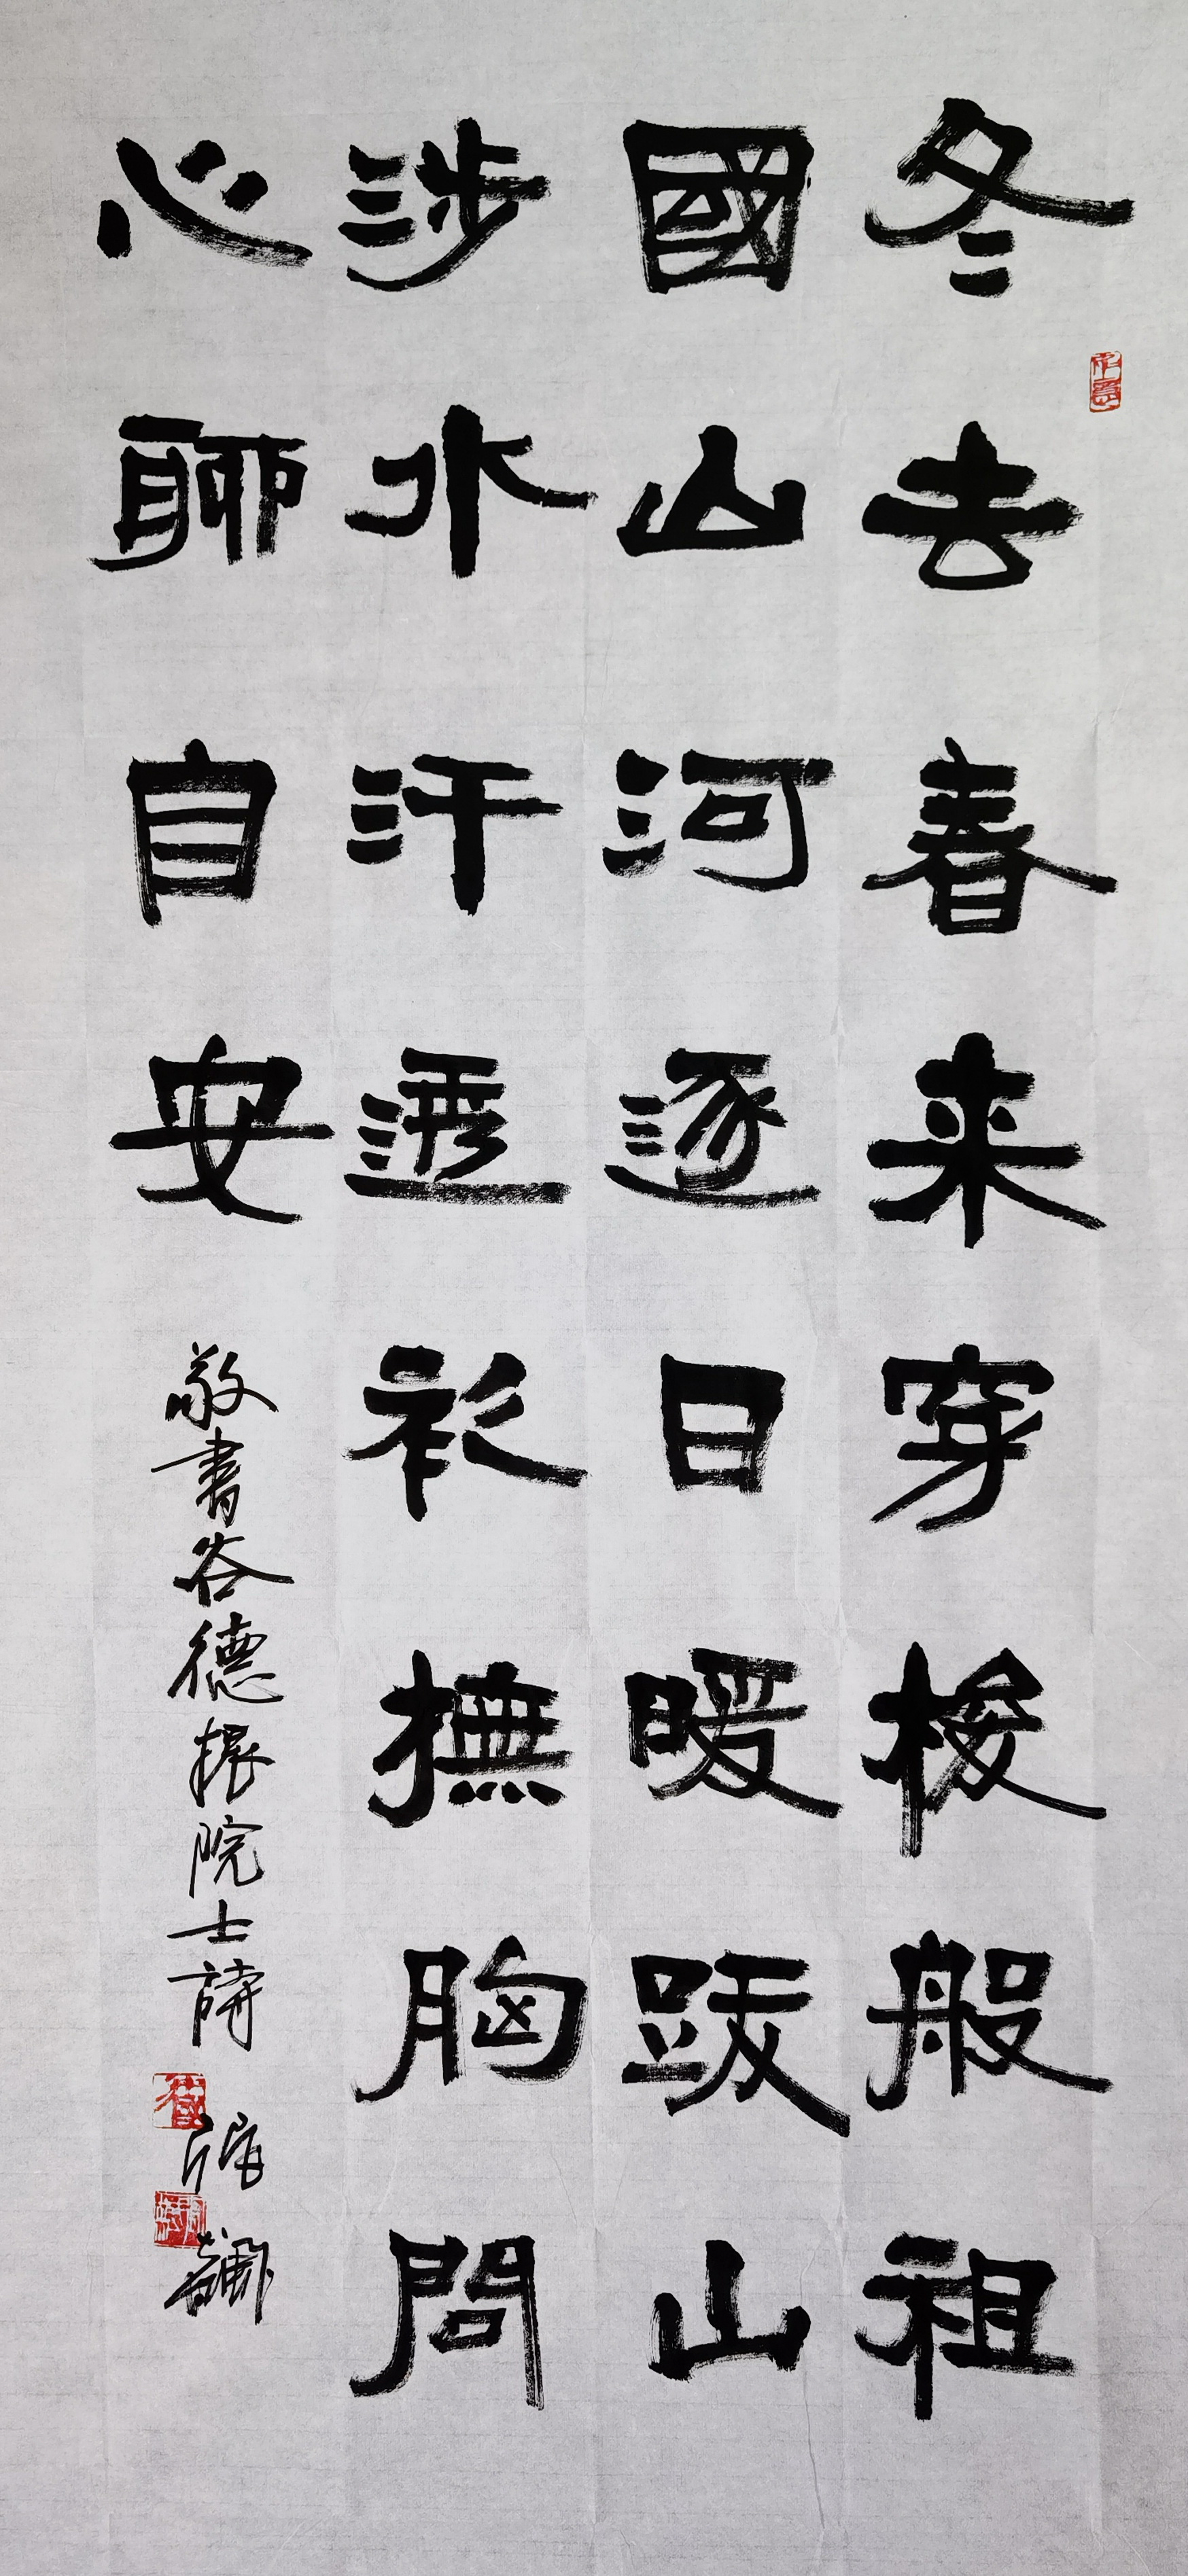 冬去春来穿梭般祖
國山河逐日暖跋山
涉水汗透衫撫胸問
心聊自安
敬書谷德振院士詩